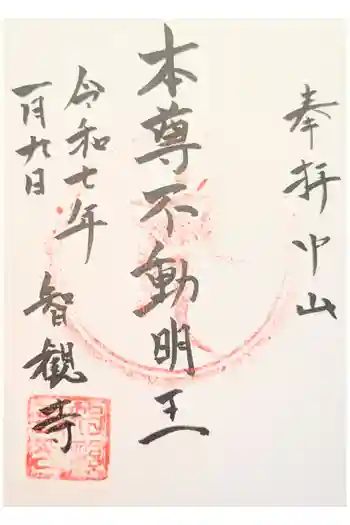 奉拝中山
本尊不動明王
令和七年
一月九日
智観寺